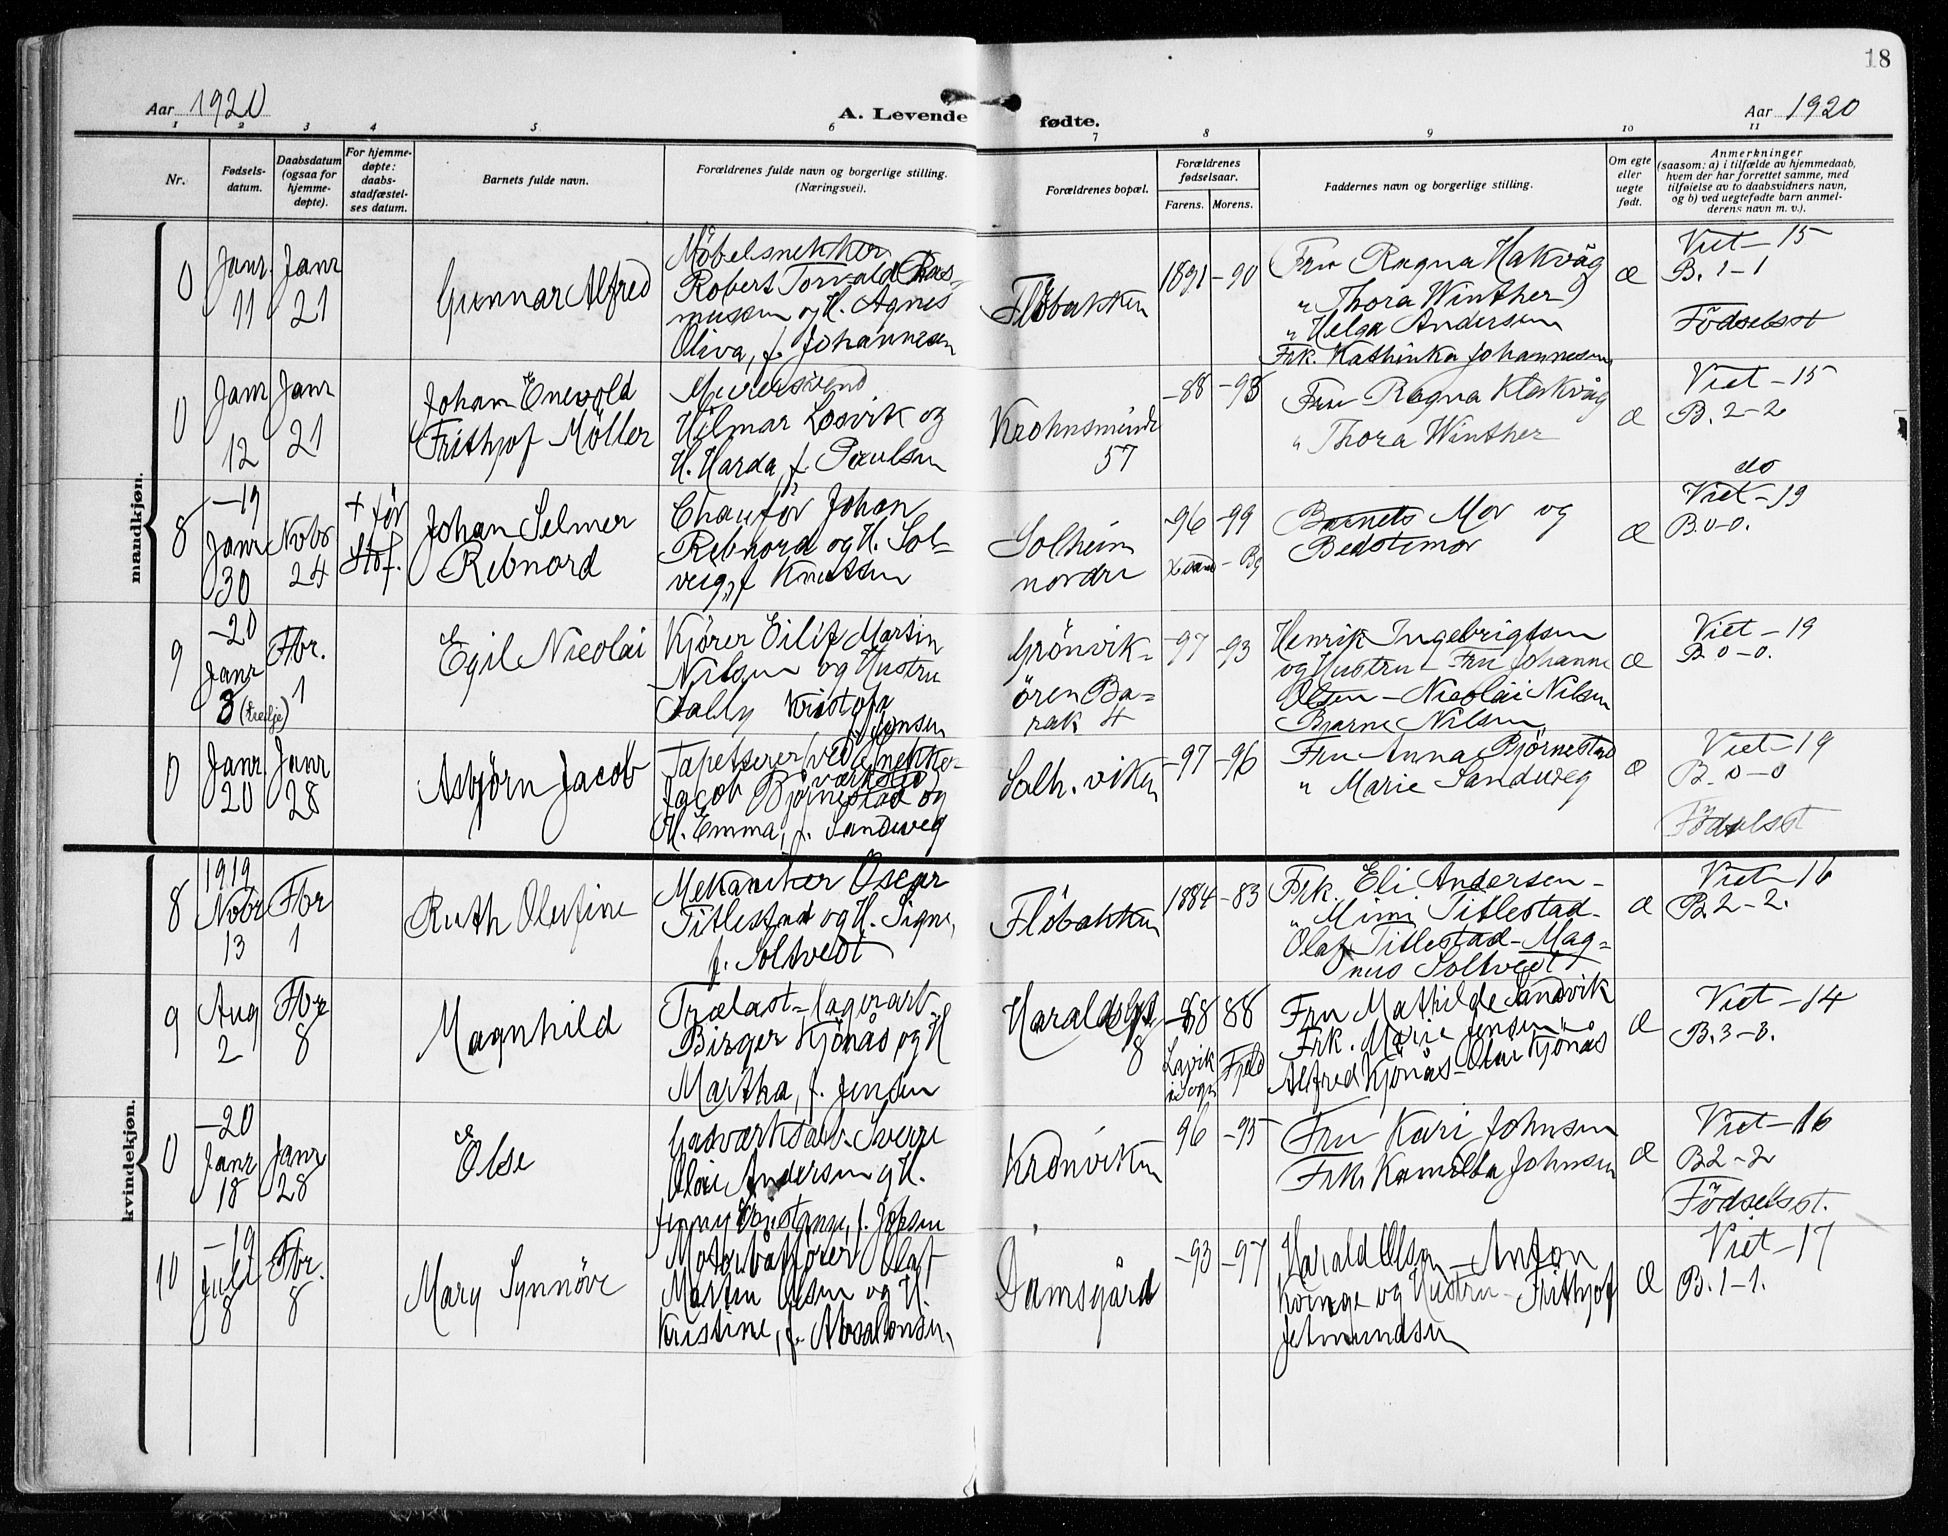 18
Aar 1920
A. Levende fødte.
Aar 1920
1 2 3 4 5 6 7 8 9 10 11
Nr.
Fødsels-
datum.
Daabsdatum
(ogsaa for
hjemme-
døpte).
For hjemme-
døpte:
daabs-
stadfæstel-
ses datum.
Barnets fulde navn.
Forældrenes fulde navn og borgerlige stilling.
(Næringsvei).
Forældrenes bopæl.
Forældrenes
fødselsaar.
Farens. Morens.
Faddernes navn og borgerlige stilling.
Om egte
eller
uegte
født.
Anmerkninger
(saasom: a) i tilfælde av hjemmedaab,
hvem der har forrettet samme, med
tilføielse av to daabsvidners navn,
og b) ved uegtefødte barn anmel-
derens navn m. v.).
mandkjøn.
0
Janr
11
Janr
21
Gunnar Alfred
Møbelsnekker
Robert Torvald Ras-
mussen og H. Agnes
Oliva, f. Johannesen
Fløbakken
1891 -90
Fru Ragna Hakvåg
" Thora Winther
" Helga Andersen
Frk. Kathinka Johannesen
æ
Viet - 15
B. 1-1
Födselsst
0
Janr
12
Janr
21
Johan Enevold
Frithjof Möller
Hilmar Losvik og
H. Harda, f. Paulsen
Krohnsminde
57
-88 -93
Fru Ragna
" Thora Winther
æ
Viet - 15
B. 2-2
do
8
-19
Janr
30
Novbr
24
+ før
Stof.
Johan Selmer
Rebnord
Chauför Johan
Rebnord og H. Sol=
veig, f Knutsen
Solheim
nordre
-96 -99
- Bg
Barnets Mor og
Bedstemor
æ
Viet - 19
B. 0-0.
9
-20
Janr
3 (tredje)
Fbr.
1
Egil Nicolai
Kjører Eilif Martin
Nilsen og Hustru
Sally Kristofa
Jensen
Grönvik=
ören Ba=
rak 4
-97 -93
Henrik Ingebrigtsen
og Hustru - Fru Johanne
Olsen - Nicolai Nilsen
Bjarne Nilsen
æ
Viet - 19
B. 0-0.
0
Janr
20
Janr
28
Asbjørn Jacob
Tapetserer (ved snekker-
værksted)
Jacob Bjørnestad og
H. Emma, f. Sandweg
Solh. viken
-97 -96
Fru Anna Bjørnestad
" Marie Sandweg
æ
Viet - 19
B. 0-0
Födselsst
kvindekjøn.
8
1919
Novbr
13
Fbr
1
Ruth Olefine
Mekaniker Oscar
Titlestad og H. Signe,
f. Soltvedt
Fløbakken
1884 -83
Frk. Eli Andersen -
" Mimi Titlestad -
Olaf Titlestad - Mag=
nus Soltvedt
æ
Viet - 16
B. 2-2.
9
Aug
2
Fbr
8
Magnhild
Trælast=lagerarb.
Birger Kjönås og H
Martha, f. Jensen
Haraldsgt
8
-88 88
Lavik
Fjeld
Fru Mathilde Sandvik
Frk. Marie Jensen
Alfred Kjönås - Olar Kjönås
æ
Viet - 14
B. 3-3.
0
-20
Janr
18
Janr
28
Else
Gasværksarb. Sverre
Olai Andersen og H.
Jenny Constanse, f. Johnsen
Kronviken
96 -95
Fru Kari Johnsen
Frk. Kamilla Johnsen
æ
Viet - 16
B 2-2
Födselsst.
10
-19
Juli
8
Fbr.
8
Mary Synnöve
Motorbåtförer Olaf
Martin Olsen og H.
Kristine, f. Absalonsen,
Damsgård
-93 -97
Harald Olsen - Anton
Kvinge og Hustru - Frithjof
Jetmundsen
æ
Viet - 17
B. 1-1.